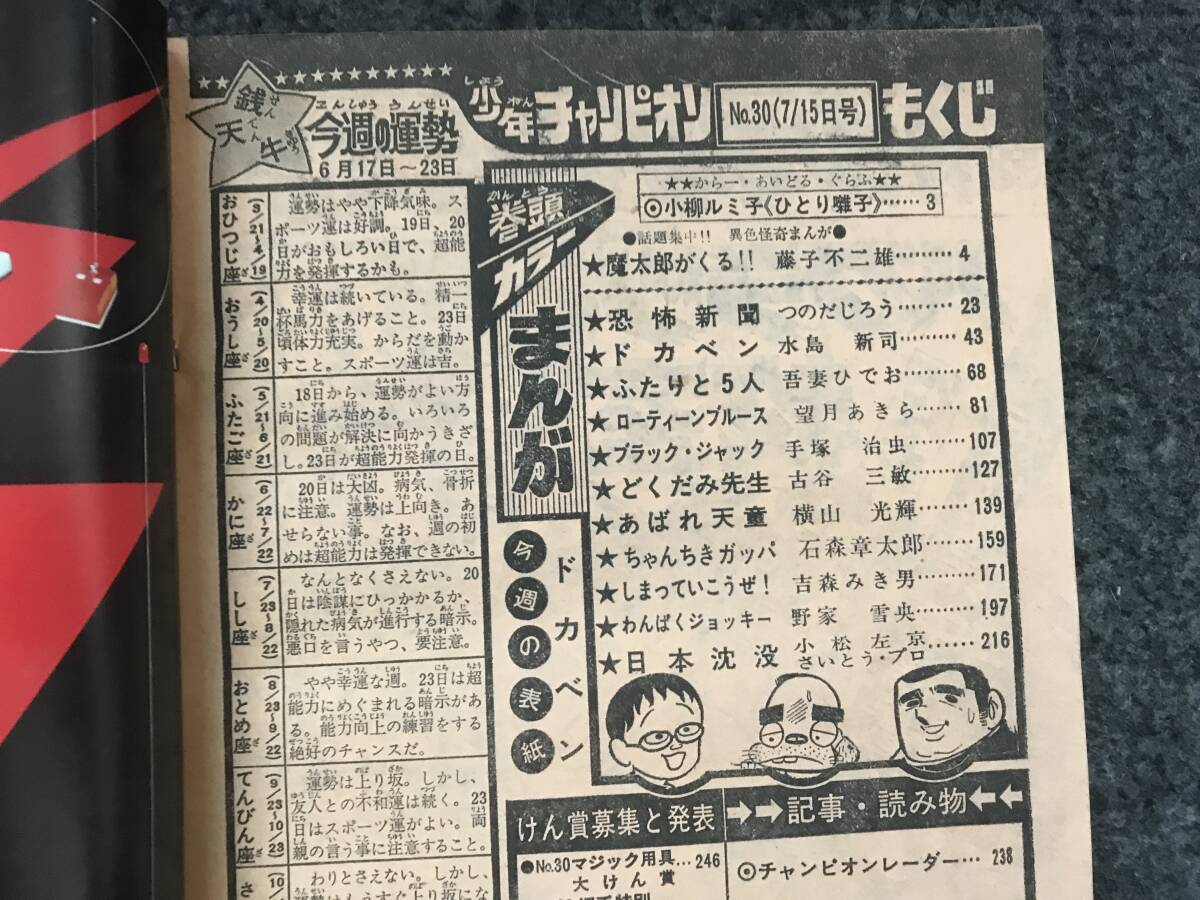 銭天牛
今週の運勢
6月17日〜23日
少年チャンピオン
No.30(7/15日号)
もくじ
おひつじ座
(3/21〜4/19)
運勢はやや下降気味。ス
ポーツ運は好調。19日、20
日がおもしろい日で、超能
力を発揮するかも。
おうし座
(4/20〜5/20)
幸運は続いている。精一
杯馬力をあげること。23日
頃体力充実。からだを動か
すこと。スポーツ運は吉。
ふたご座
(5/21〜6/21)
18日から、運勢がよい方
向に進み始める。いろいろ
の問題が解決に向かうきざ
し。23日が超能力発揮の日。
かに座
(6/22〜7/22)
20日は大凶。病気、骨折
に注意。運勢は上向き。あ
せらない事。なお、週の初
めは超能力は発揮できない。
しし座
(7/23〜8/22)
なんとなくさえない。20
日は陰謀にひっかかるか、
隠れた病気が進行する暗示。
悪口を言うやつ、要注意。
おとめ座
(8/23〜9/22)
やや幸運な週。23日は超
能力にめぐまれる暗示があ
る。能力向上の練習をする
絶好のチャンスだ。
てんびん座
(9/23〜10/23)
運勢は上り坂。しかし、
友人との不和運は続く。23
日はスポーツ運がよい。両
親の言う事に注意すること。
さ
(10/
わりとさえない。しかし、
巻頭カラー
まんが
★★からー・あいどる・ぐらふ★★
◎小柳ルミ子《ひとり囃子》……3
●話題集中!! 異色怪奇まんが●
★魔太郎がくる!! 藤子不二雄………4
★恐怖新聞 つのだじろう………23
★ドカベン 水島新司………43
★ふたりと5人 吾妻ひでお………68
★ローティーンブルース 望月あきら……81
★ブラック・ジャック 手塚治虫………107
★どくだみ先生 古谷三敏………127
★あばれ天童 横山光輝………139
★ちゃんちきガッパ 石森章太郎………159
★しまっていこうぜ! 吉森みき男………171
★わんぱくジョッキー 野家雪央………197
★日本沈没 小松左京 さいとう・プロ……216
今週の表紙
ドカベン
けん賞募集と発表
●No.30マジック用具…246
大けん賞
➡➡記事・読み物⬅⬅
◎チャンピオンレーダー…238